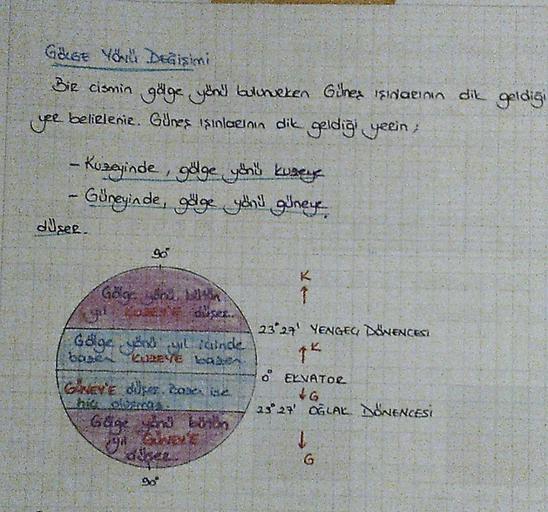 GÖLGE YÖNÜ DEĞİŞİMİ
Bir cismin gölge yönü bulunurken Güneş ışınlarının dik geldiği
yer belirlenir. Güneş ışınlarının dik geldiği yerin;
- Kuzeyinde, gölge yönü kuzeye
- Güneyinde, gölge yönü güneye
düşer.
90°
Gölge yönü bütün
yıl KUZEY'E düşer.
Gölge yönü yıl içinde
bazen KUZEYE bazen
GÜNEY'E düşer. Bazen ise
hiç oluşmaz.
Gölge yönü bütün
yıl GÜNEY'E
düşer.
90°
K
23°27' YENGEÇ DÖNENCESİ
K
0° EKVATOR
G
23°27' OĞLAK DÖNENCESİ
G